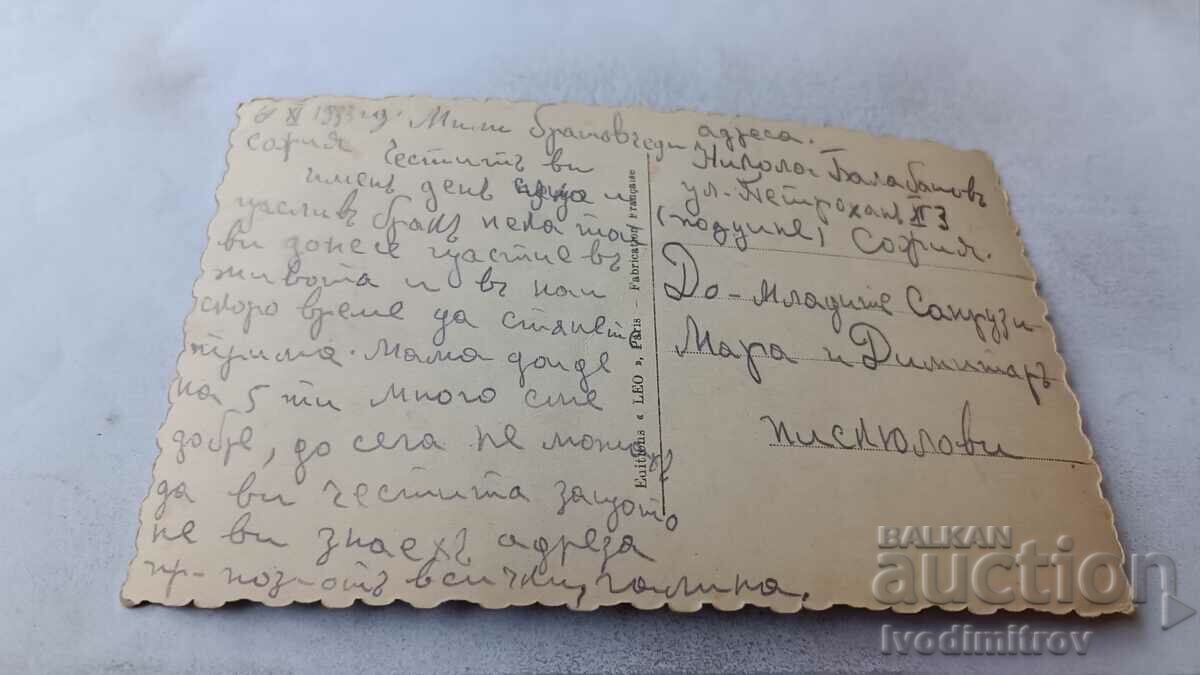 XI 1933 г. Мили братовчеди
София Честитъ ви
именъ денъ и
щасливъ бракъ нека той
ви донесе щастие въ
живота и въ най
скоро време да станете
трима. Мама дойде
на 5 ти много сме
добре, до сега не можахъ
да ви честита защото
не ви знаехъ адреза
пр-поз-отъ всички, галина.
Editions « LEO », Paris — Fabrication Française
адреса.
Никола Балабановъ
ул. Петроханъ 3
София.
До-Младите Сапрузи
Мара и Димитаръ
пискюлови
BALKAN
auction
Ivodimitrov